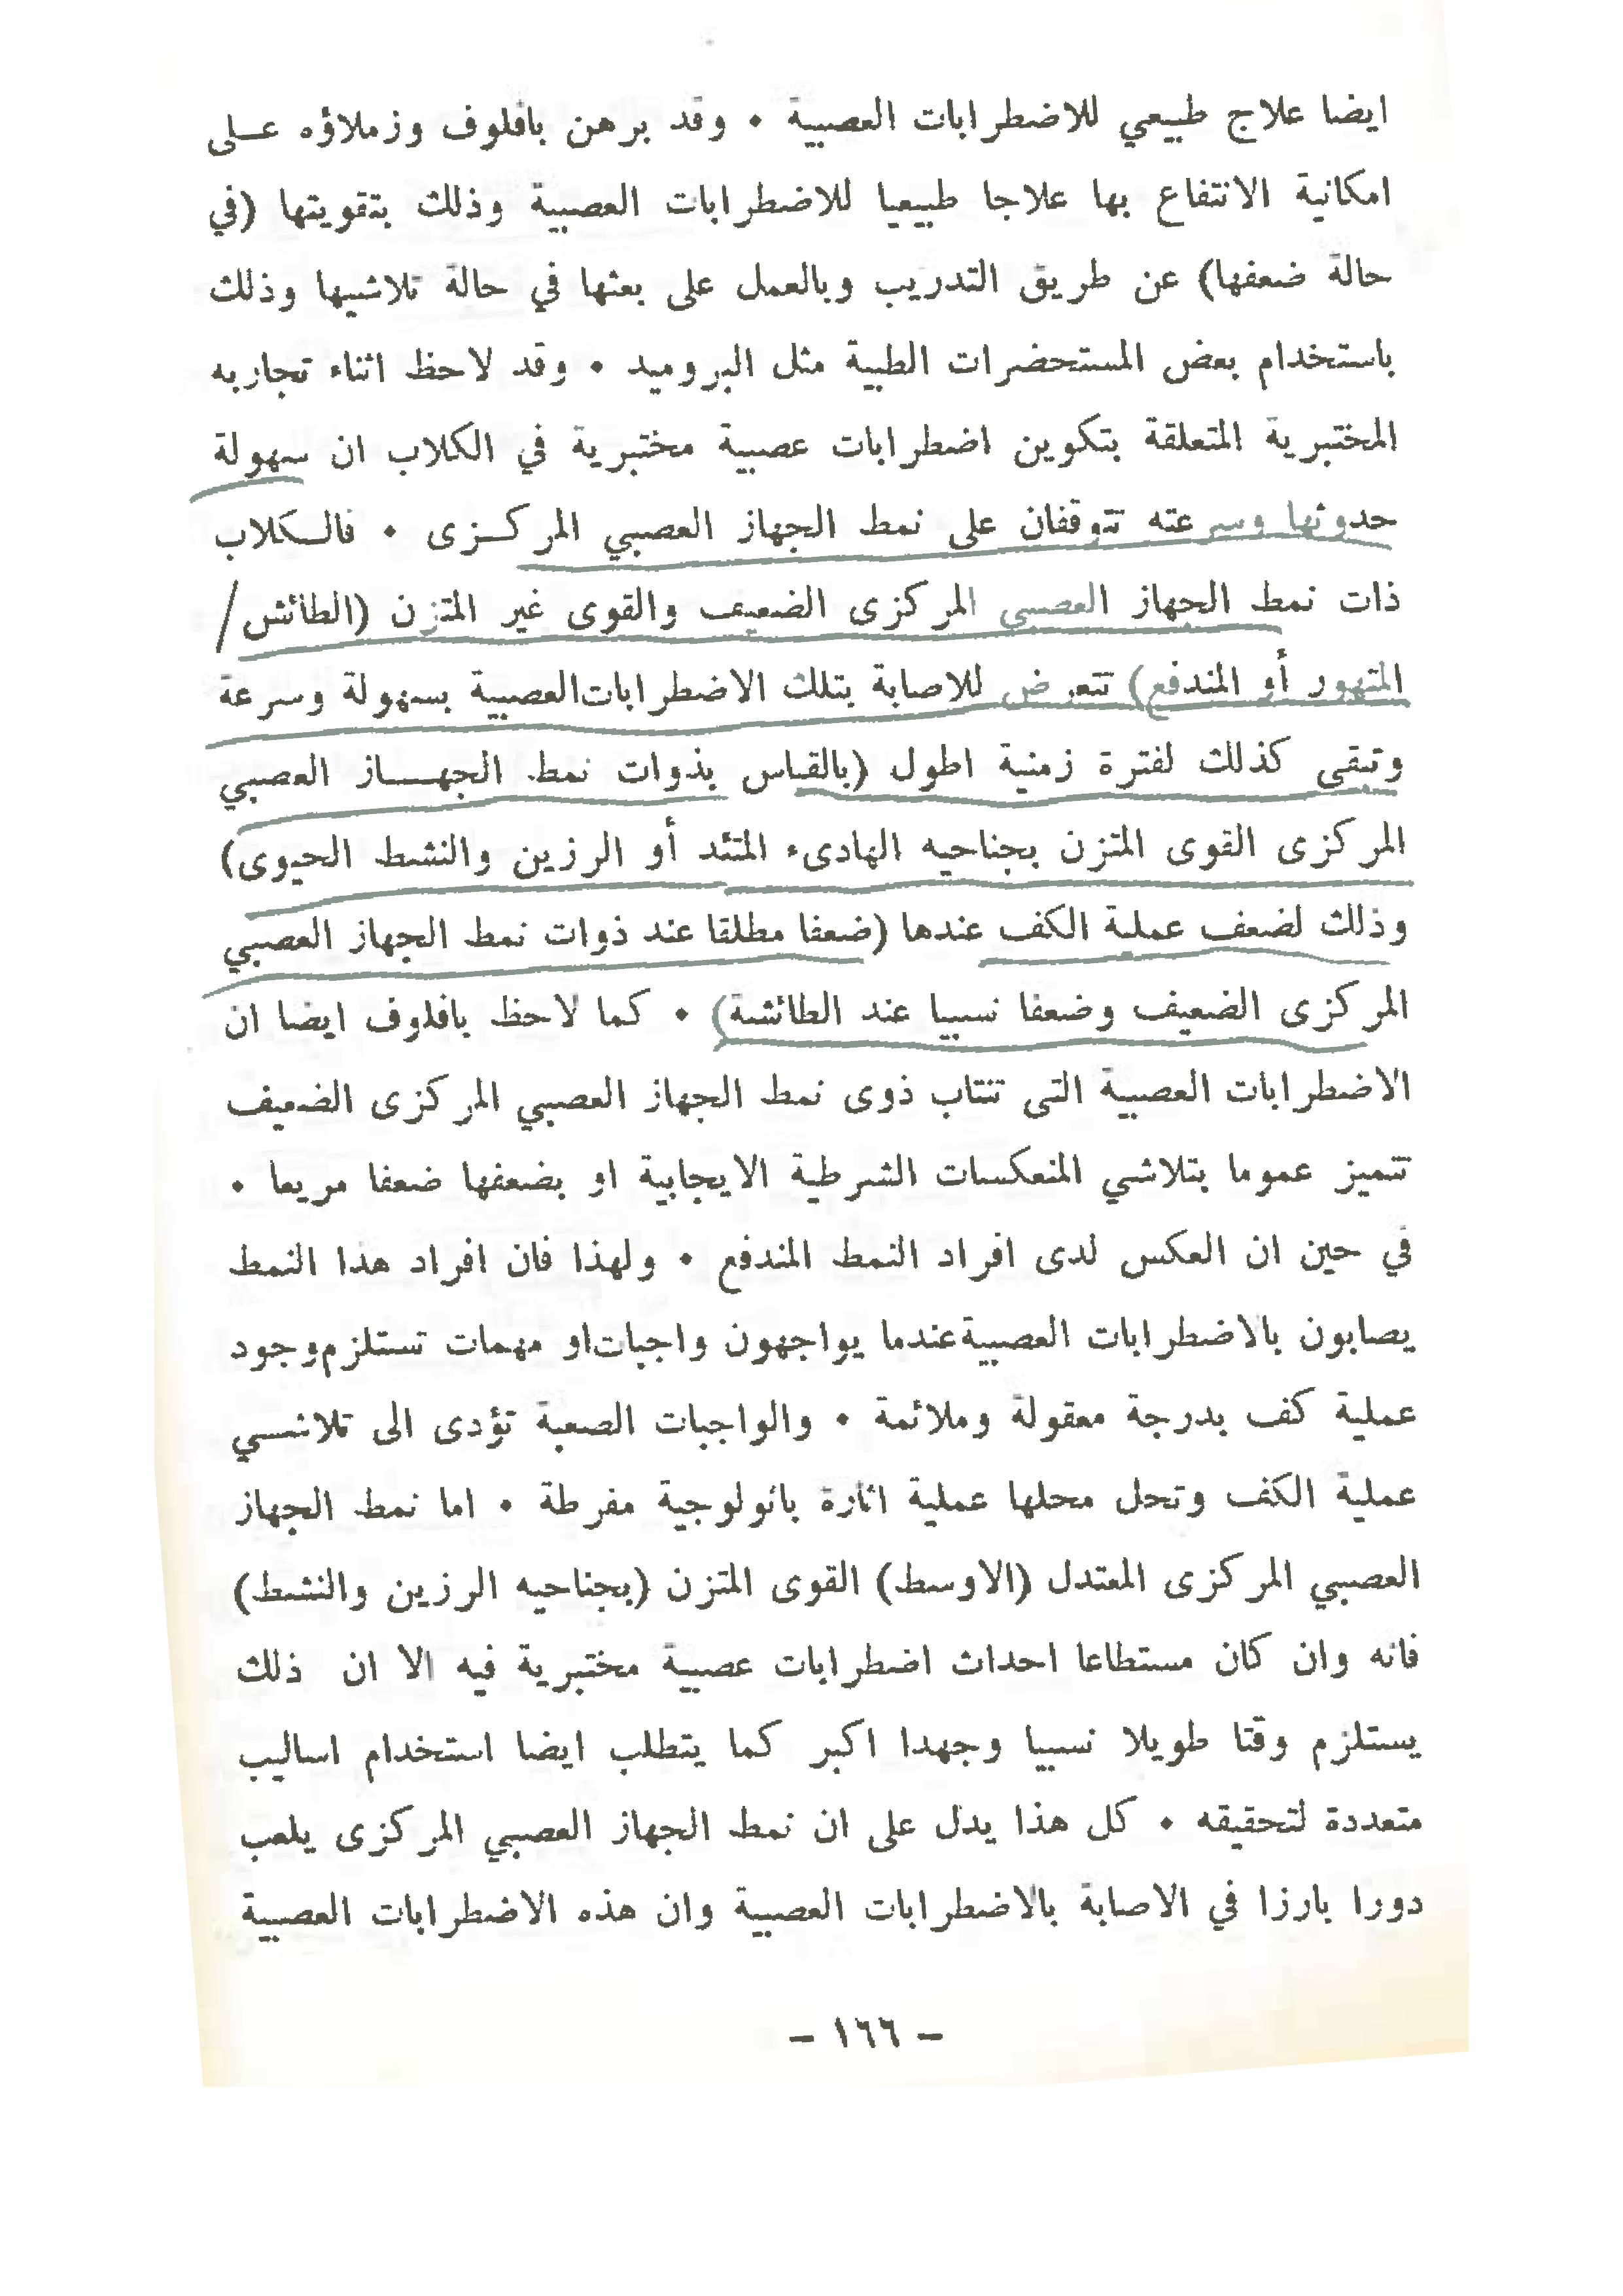 ايضا علاج طبيعي للاضطرابات العصبية • وقد برهن بافلوف وزملاؤه عـلى
امكانية الانتفاع بها علاجا طبيعيا للاضطرابات العصبية وذلك بتقويتها (في
حالة ضعفها) عن طريق التدريب وبالعمل على بعثها في حالة تلاشيها وذلك
باستخدام بعض المستحضرات الطبية مثل البروميد • وقد لاحظ اثناء تجاربه
المختبرية المتعلقة بتكوين اضطرابات عصبية مختبرية في الكلاب ان سهولة
حدوثها وسرعته تتوقفان على نمط الجهاز العصبي المركـزى • فالـكلاب
ذات نمط الجهاز العصبي المركزى الضعيف والقوى غير المتزن (الطائش/
المتهور أو المندفع) تتعرض للاصابة بتلك الاضطرابات العصبية بسهولة وسرعة
وتبقى كذلك لفترة زمنية اطول (بالقياس بذوات نمط الجهـــاز العصبي
المركزى القوى المتزن بجناحيه الهادىء المتئد أو الرزين والنشط الحيوى)
وذلك لضعف عملية الكف عندها (ضعفا مطلقا عند ذوات نمط الجهاز العصبي
المركزى الضعيف وضعفا نسبيا عند الطائشة) • كما لاحظ بافلوف ايضا ان
الاضطرابات العصبية التى تنتاب ذوى نمط الجهاز العصبي المركزى الضعيف
تتميز عموما بتلاشي المنعكسات الشرطية الايجابية او بضعفها ضعفا مريعا •
في حين ان العكس لدى افراد النمط المندفع • ولهذا فان افراد هذا النمط
يصابون بالاضطرابات العصبية عندما يواجهون واجبات او مهمات تستلزم وجود
عملية كف بدرجة معقولة وملائمة • والواجبات الصعبة تؤدى الى تلاشي
عملية الكف وتحل محلها عملية اثارة باثولوجية مفرطة • اما نمط الجهاز
العصبي المركزى المعتدل (الاوسط) القوى المتزن (بجناحيه الرزين والنشط)
فانه وان كان مستطاعا احداث اضطرابات عصبية مختبرية فيه الا ان ذلك
يستلزم وقتا طويلا نسبيا وجهدا اكبر كما يتطلب ايضا استخدام اساليب
متعددة لتحقيقه • كل هذا يدل على ان نمط الجهاز العصبي المركزى يلعب
دورا بارزا في الاصابة بالاضطرابات العصبية وان هذه الاضطرابات العصبية
– ١٦٦ –